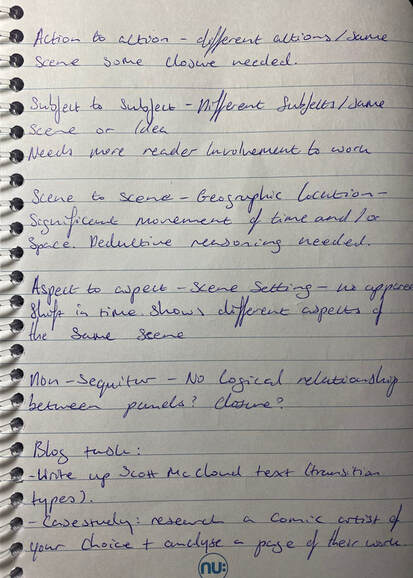 Action to action - different actions/same
scene some closure needed.
Subject to Subject - Different Subjects/same
scene or idea
Needs more reader involvement to work
Scene to scene - Geographic location -
Significant movement of time and/or
space. Deductive reasoning needed.
Aspect to aspect - Scene Setting - no appare
shift in time. Shows different aspects of
the same scene
Non-Sequitur - No logical relationship
between panels? closure?
Blog task:
-Write up Scott McCloud text (transition
types).
- Casestudy: research a comic artist of
your choice + analyse a page of their work
nu: